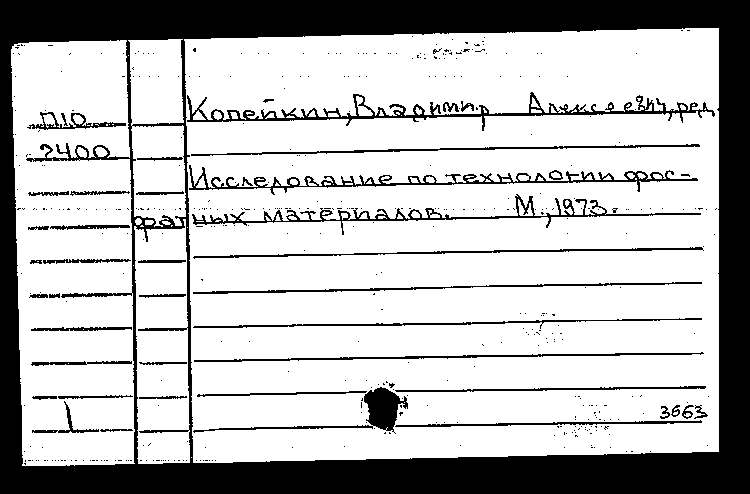 П10 Копейкин, Владимир Алексеевич, ред.
2400
Исследование по технологии фос-
фатных материалов. М., 1973.
3663